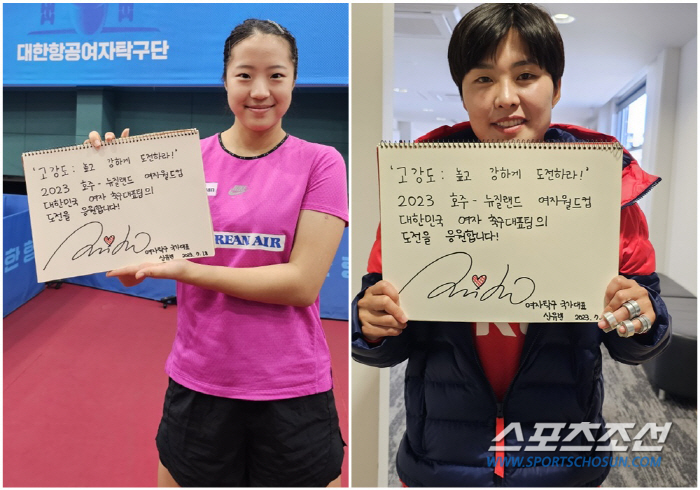 대한항공여자탁구단
'고강도: 높고 강하게 도전하라!'
2023 호주-뉴질랜드 여자월드컵
대한민국 여자 축구대표팀의
도전을 응원합니다!
여자탁구 국가대표
신유빈 2023. 7. 18
KOREAN AIR
'고강도: 높고 강하게 도전하라!'
2023 호주-뉴질랜드 여자월드컵
대한민국 여자 축구대표팀의
도전을 응원합니다!
여자탁구 국가대표
신유빈 2023. 7.
스포츠조선
WWW.SPORTSCHOSUN.COM